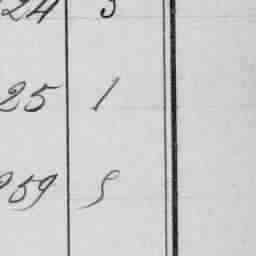 24 5
25 1
959 5